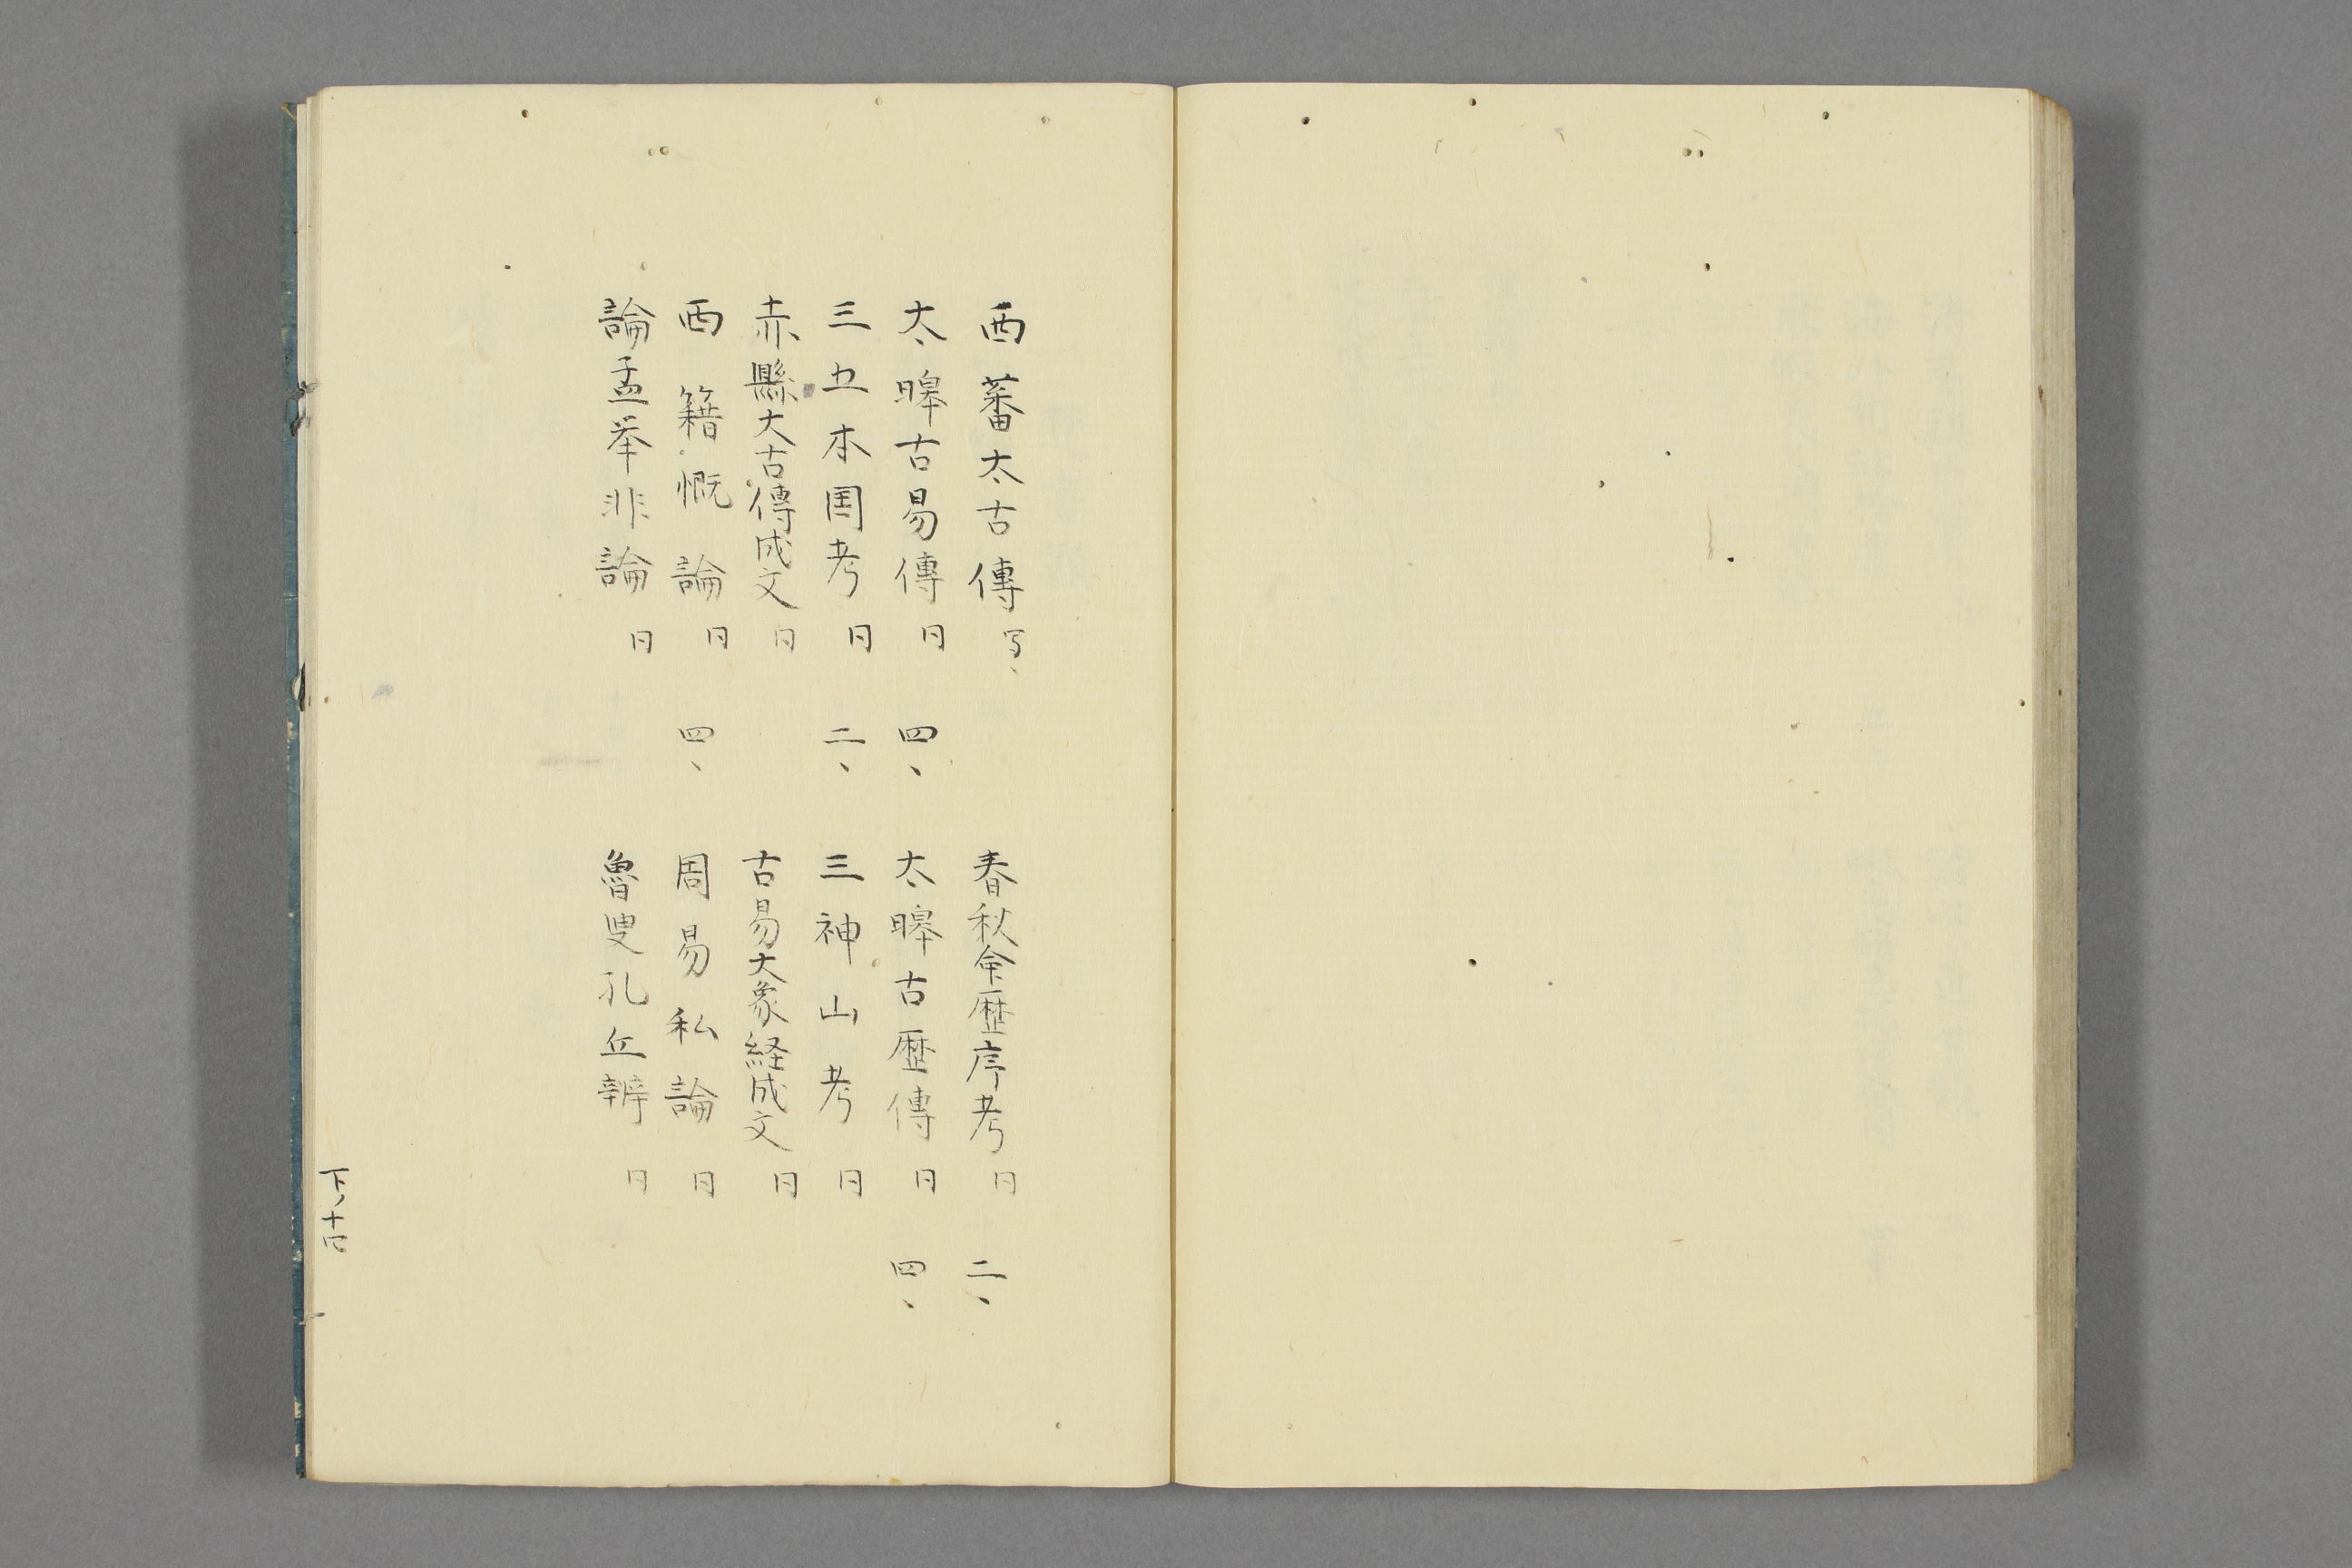 西蕃太古傳 写、
春秋命歴序考 同 二、
太皞古易傳 同 四、
太皞古歴傳 同 四、
三五本国考 同 二、
三神山考 同
赤縣太古傳成文 同
古易大象経成文 同
西籍慨論 同 四、
周易私論 同
論孟挙非論 同
魯叟孔丘辨 同
下ノ十四